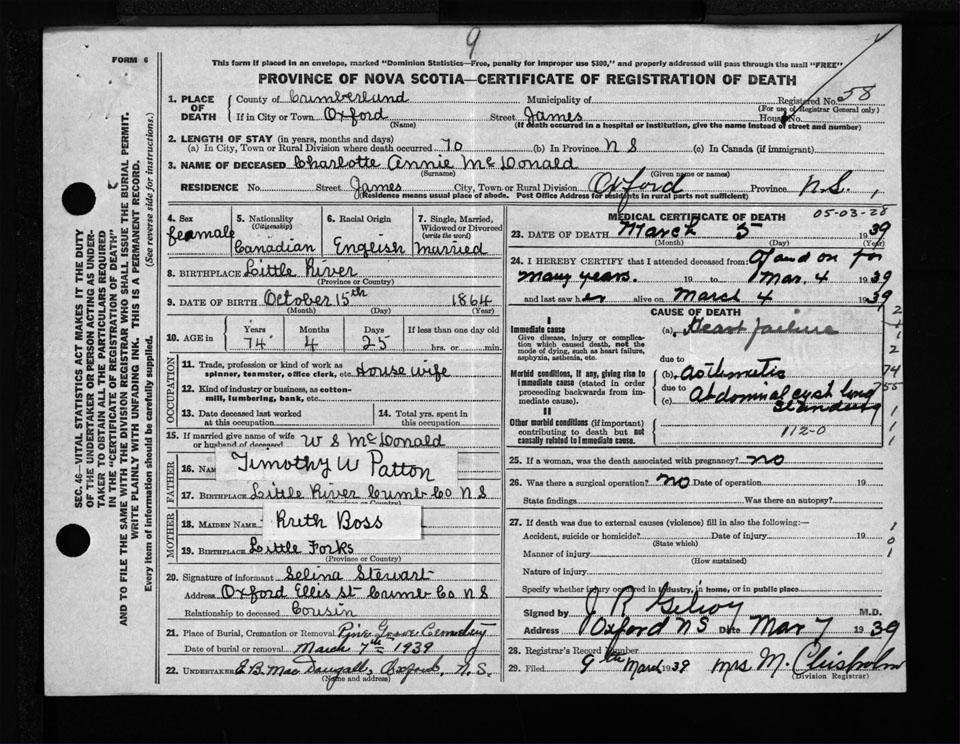 9
FORM 6
This form if placed in an envelope, marked "Dominion Statistics—Free, penalty for improper use $300," and properly addressed will pass through the mail "FREE"
PROVINCE OF NOVA SCOTIA—CERTIFICATE OF REGISTRATION OF DEATH
SEC. 46—VITAL STATISTICS ACT MAKES IT THE DUTY
OF THE UNDERTAKER OR PERSON ACTING AS UNDER-
TAKER TO OBTAIN ALL THE PARTICULARS REQUIRED
IN THE "CERTIFICATE OF REGISTRATION OF DEATH"
AND TO FILE THE SAME WITH THE DIVISION REGISTRAR WHO SHALL ISSUE THE BURIAL PERMIT.
WRITE PLAINLY WITH UNFADING INK. THIS IS A PERMANENT RECORD.
Every item of information should be carefully supplied. (See reverse side for instructions.)
1. PLACE OF DEATH County of Cumberland Municipality of Registered No. 58
(For use of Registrar General only)
If in City or Town Oxford Street James House No.
(Name) (If death occurred in a hospital or institution, give the name instead of street and number)
2. LENGTH OF STAY (in years, months and days)
(a) In City, Town or Rural Division where death occurred 70 (b) In Province N S (c) In Canada (if immigrant)
3. NAME OF DECEASED Charlotte Annie McDonald
(Surname) (Given name or names)
RESIDENCE No. Street James City, Town or Rural Division Oxford Province N.S.
(Residence means usual place of abode. Post Office Address for residents in rural parts not sufficient)
4. Sex female
5. Nationality (Citizenship) Canadian
6. Racial Origin English
7. Single, Married, Widowed or Divorced (write the word) Married
8. BIRTHPLACE Little River
(Province or Country)
9. DATE OF BIRTH October 15th 1864
(Month) (Day) (Year)
10. AGE in Years 74 Months 4 Days 25 If less than one day old hrs. or min.
OCCUPATION
11. Trade, profession or kind of work as spinner, teamster, office clerk, etc. House wife
12. Kind of industry or business, as cotton-mill, lumbering, bank, etc.
13. Date deceased last worked at this occupation
14. Total yrs. spent in this occupation
15. If married give name of wife or husband of deceased W S McDonald
FATHER
16. Name Timothy W Patton
17. Birthplace Little River Cumb Co N S
MOTHER
18. Maiden Name Ruth Boss
19. Birthplace Little Forks
(Province or Country)
20. Signature of informant Selina Stewart
Address Oxford Ellis St Cumb Co N S
Relationship to deceased Cousin
21. Place of Burial, Cremation or Removal Pine Grove Cemetery
Date of burial or removal March 7th 1939
22. Undertaker MacDougall, Oxford, N.S.
(Name and address)
MEDICAL CERTIFICATE OF DEATH
05-03-28
23. DATE OF DEATH March 5 1939
(Month) (Day) (Year)
24. I HEREBY CERTIFY that I attended deceased from Off and on for
many years. 19 to Mar. 4 1939
and last saw her alive on March 4 1939
CAUSE OF DEATH
I
Immediate cause (a) Heart failure
Give disease, injury or complication which caused death, not the mode of dying, such as heart failure, asphyxia, asthenia, etc.
due to
Morbid conditions, if any, giving rise to immediate cause (stated in order proceeding backwards from immediate cause). (b) Asthmatic
due to
(c) Abdominal cyst long
standing
II
Other morbid conditions (if important) contributing to death but not causally related to immediate cause.
112-0
25. If a woman, was the death associated with pregnancy? no
26. Was there a surgical operation? no Date of operation 19
State findings Was there an autopsy?
27. If death was due to external causes (violence) fill in also the following:—
Accident, suicide or homicide? Date of injury 19
(State which)
Manner of injury
(How sustained)
Nature of injury
Specify whether injury occurred in industry, in home, or in public place
Signed by J R Gilroy M.D.
Address Oxford N S Date Mar 7 1939
28. Registrar's Record Number
29. Filed 9th March 1939 Mrs M. Chisholm
(Division Registrar)